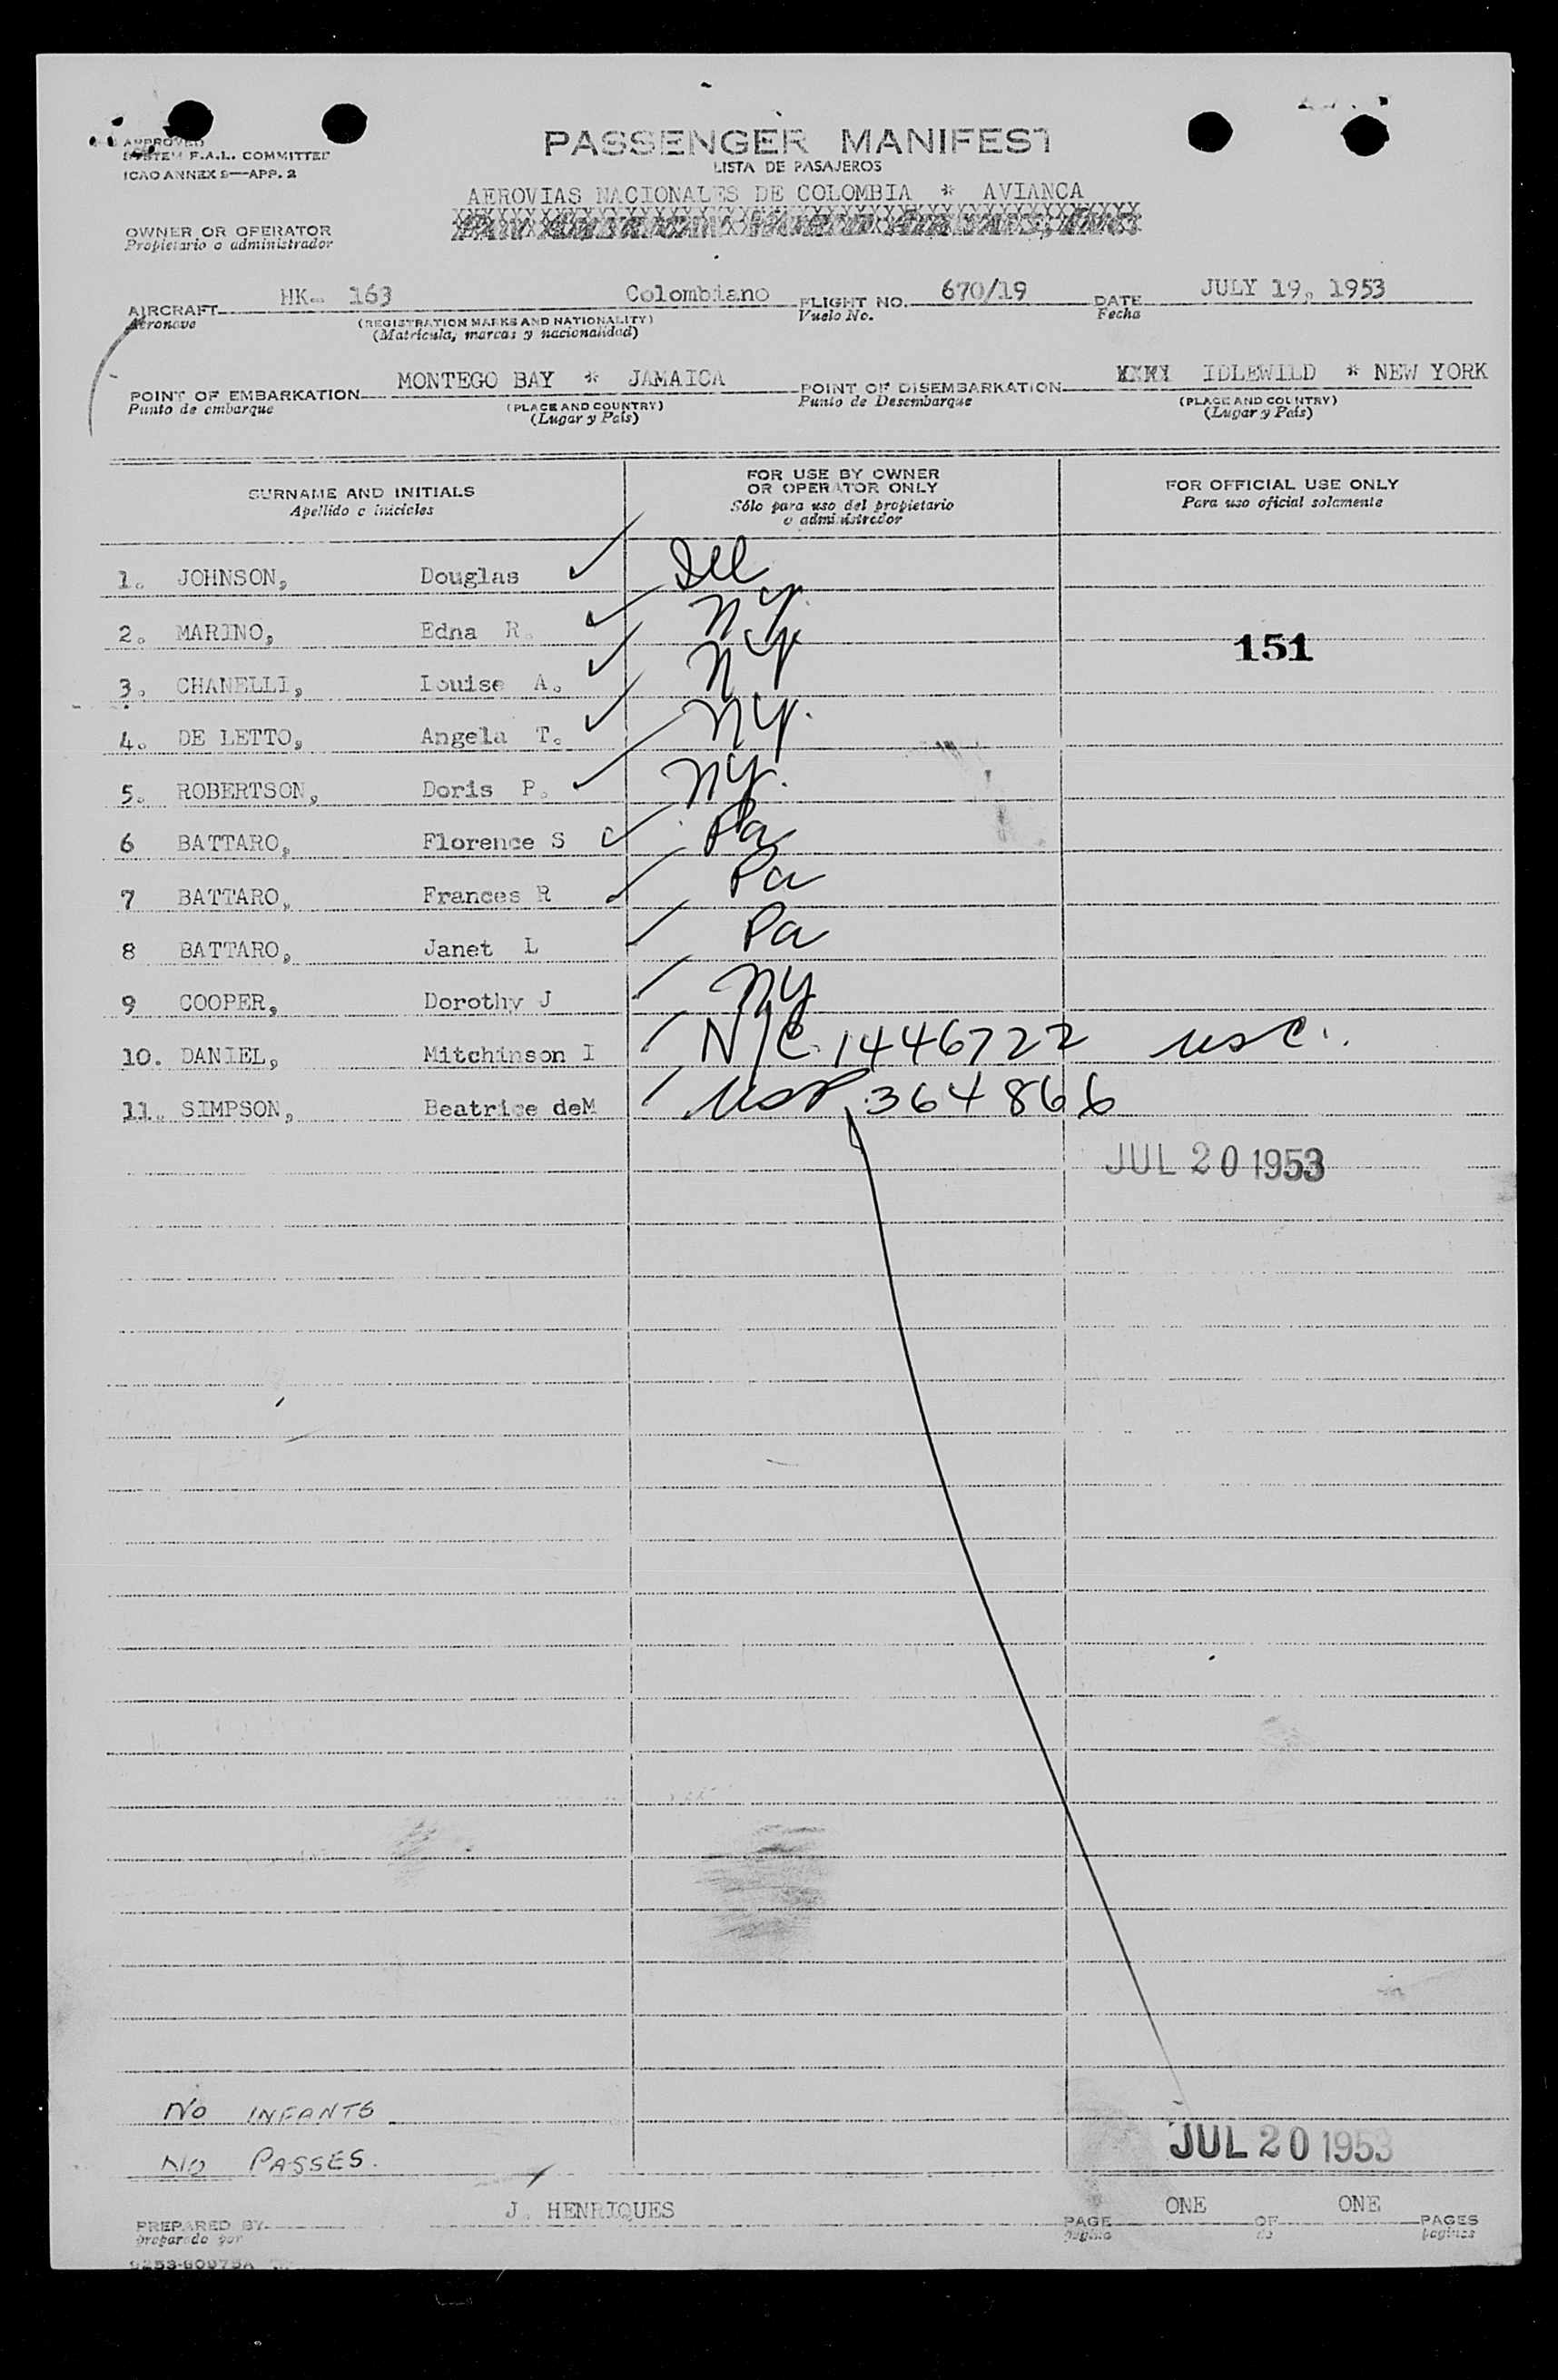 APPROVED
SYSTEM F.A.L. COMMITTEE
ICAO ANNEX 9—APP. 2
PASSENGER MANIFEST
LISTA DE PASAJEROS
AEROVIAS NACIONALES DE COLOMBIA * AVIANCA
OWNER OR OPERATOR
Propietario o administrador
AIRCRAFT HK- 163 Colombiano FLIGHT NO. 670/19 DATE JULY 19, 1953
Aeronave (REGISTRATION MARKS AND NATIONALITY) Vuelo No. Fecha
(Matrícula, marcas y nacionalidad)
POINT OF EMBARKATION MONTEGO BAY * JAMAICA POINT OF DISEMBARKATION IDLEWILD * NEW YORK
Punto de embarque (PLACE AND COUNTRY) Punto de Desembarque (PLACE AND COUNTRY)
(Lugar y País) (Lugar y País)
SURNAME AND INITIALS
Apellido e iniciales
FOR USE BY OWNER
OR OPERATOR ONLY
Sólo para uso del propietario
o administrador
FOR OFFICIAL USE ONLY
Para uso oficial solamente
1. JOHNSON, Douglas Ill
2. MARINO, Edna R. NY.
151
3. CHANELLI, Louise A. NY
4. DE LETTO, Angela T. NY.
5. ROBERTSON, Doris P. NY.
6 BATTARO, Florence S Pa
7 BATTARO, Frances R Pa
8 BATTARO, Janet L Pa
9 COOPER, Dorothy J NY
10. DANIEL, Mitchinson I N/C 1446722 USC.
11. SIMPSON, Beatrice deM USP 364866
JUL 20 1953
NO INFANTS
NO PASSES.
JUL 20 1953
PREPARED BY J. HENRIQUES PAGE ONE OF ONE PAGES
preparado por página de páginas